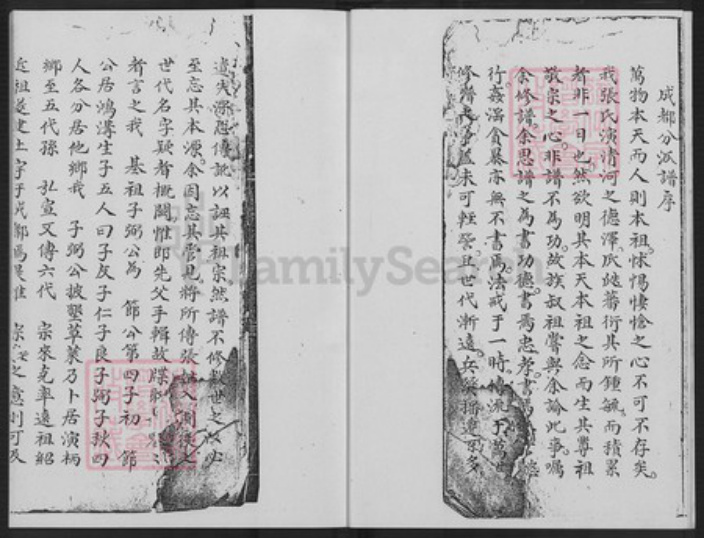 成都分派譜序
萬物本天而人則本祖怵惕悽愴之心不可不存矣。
我張氏演清河之德澤瓜瓞蕃衍其所鍾毓而積累
者非一日也。然欲明其本天本祖之念而生其尊祖
敬宗之心。非譜不為功。故族叔祖 與余論此事。囑
余修譜。余思譜之為書功德書焉忠孝書焉
行姦濫貪暴亦無不書焉。法戒于一時。傳流于萬世
修齊 未可輕 且世代漸遠。兵燹播遷 多
遺失深恐傳訛以誣其祖宗然譜不修數世之 必
至忘其本源。余因忘其管見。將所傳張 入 後之
世代名字疑者概闕惟即先父手輯故牒
者言之我 基祖子弼公為 節公第四子初 節
公居鴻溝生子五人曰子友子仁子良子弼子秋四
人各分居他鄉我 子弼公披墾草萊乃卜居演柄
鄉至五代孫 弘宣又傳六代 宗來克率遠祖紹
近祖 建土字于成都 宗 之 則可及
FamilySearch